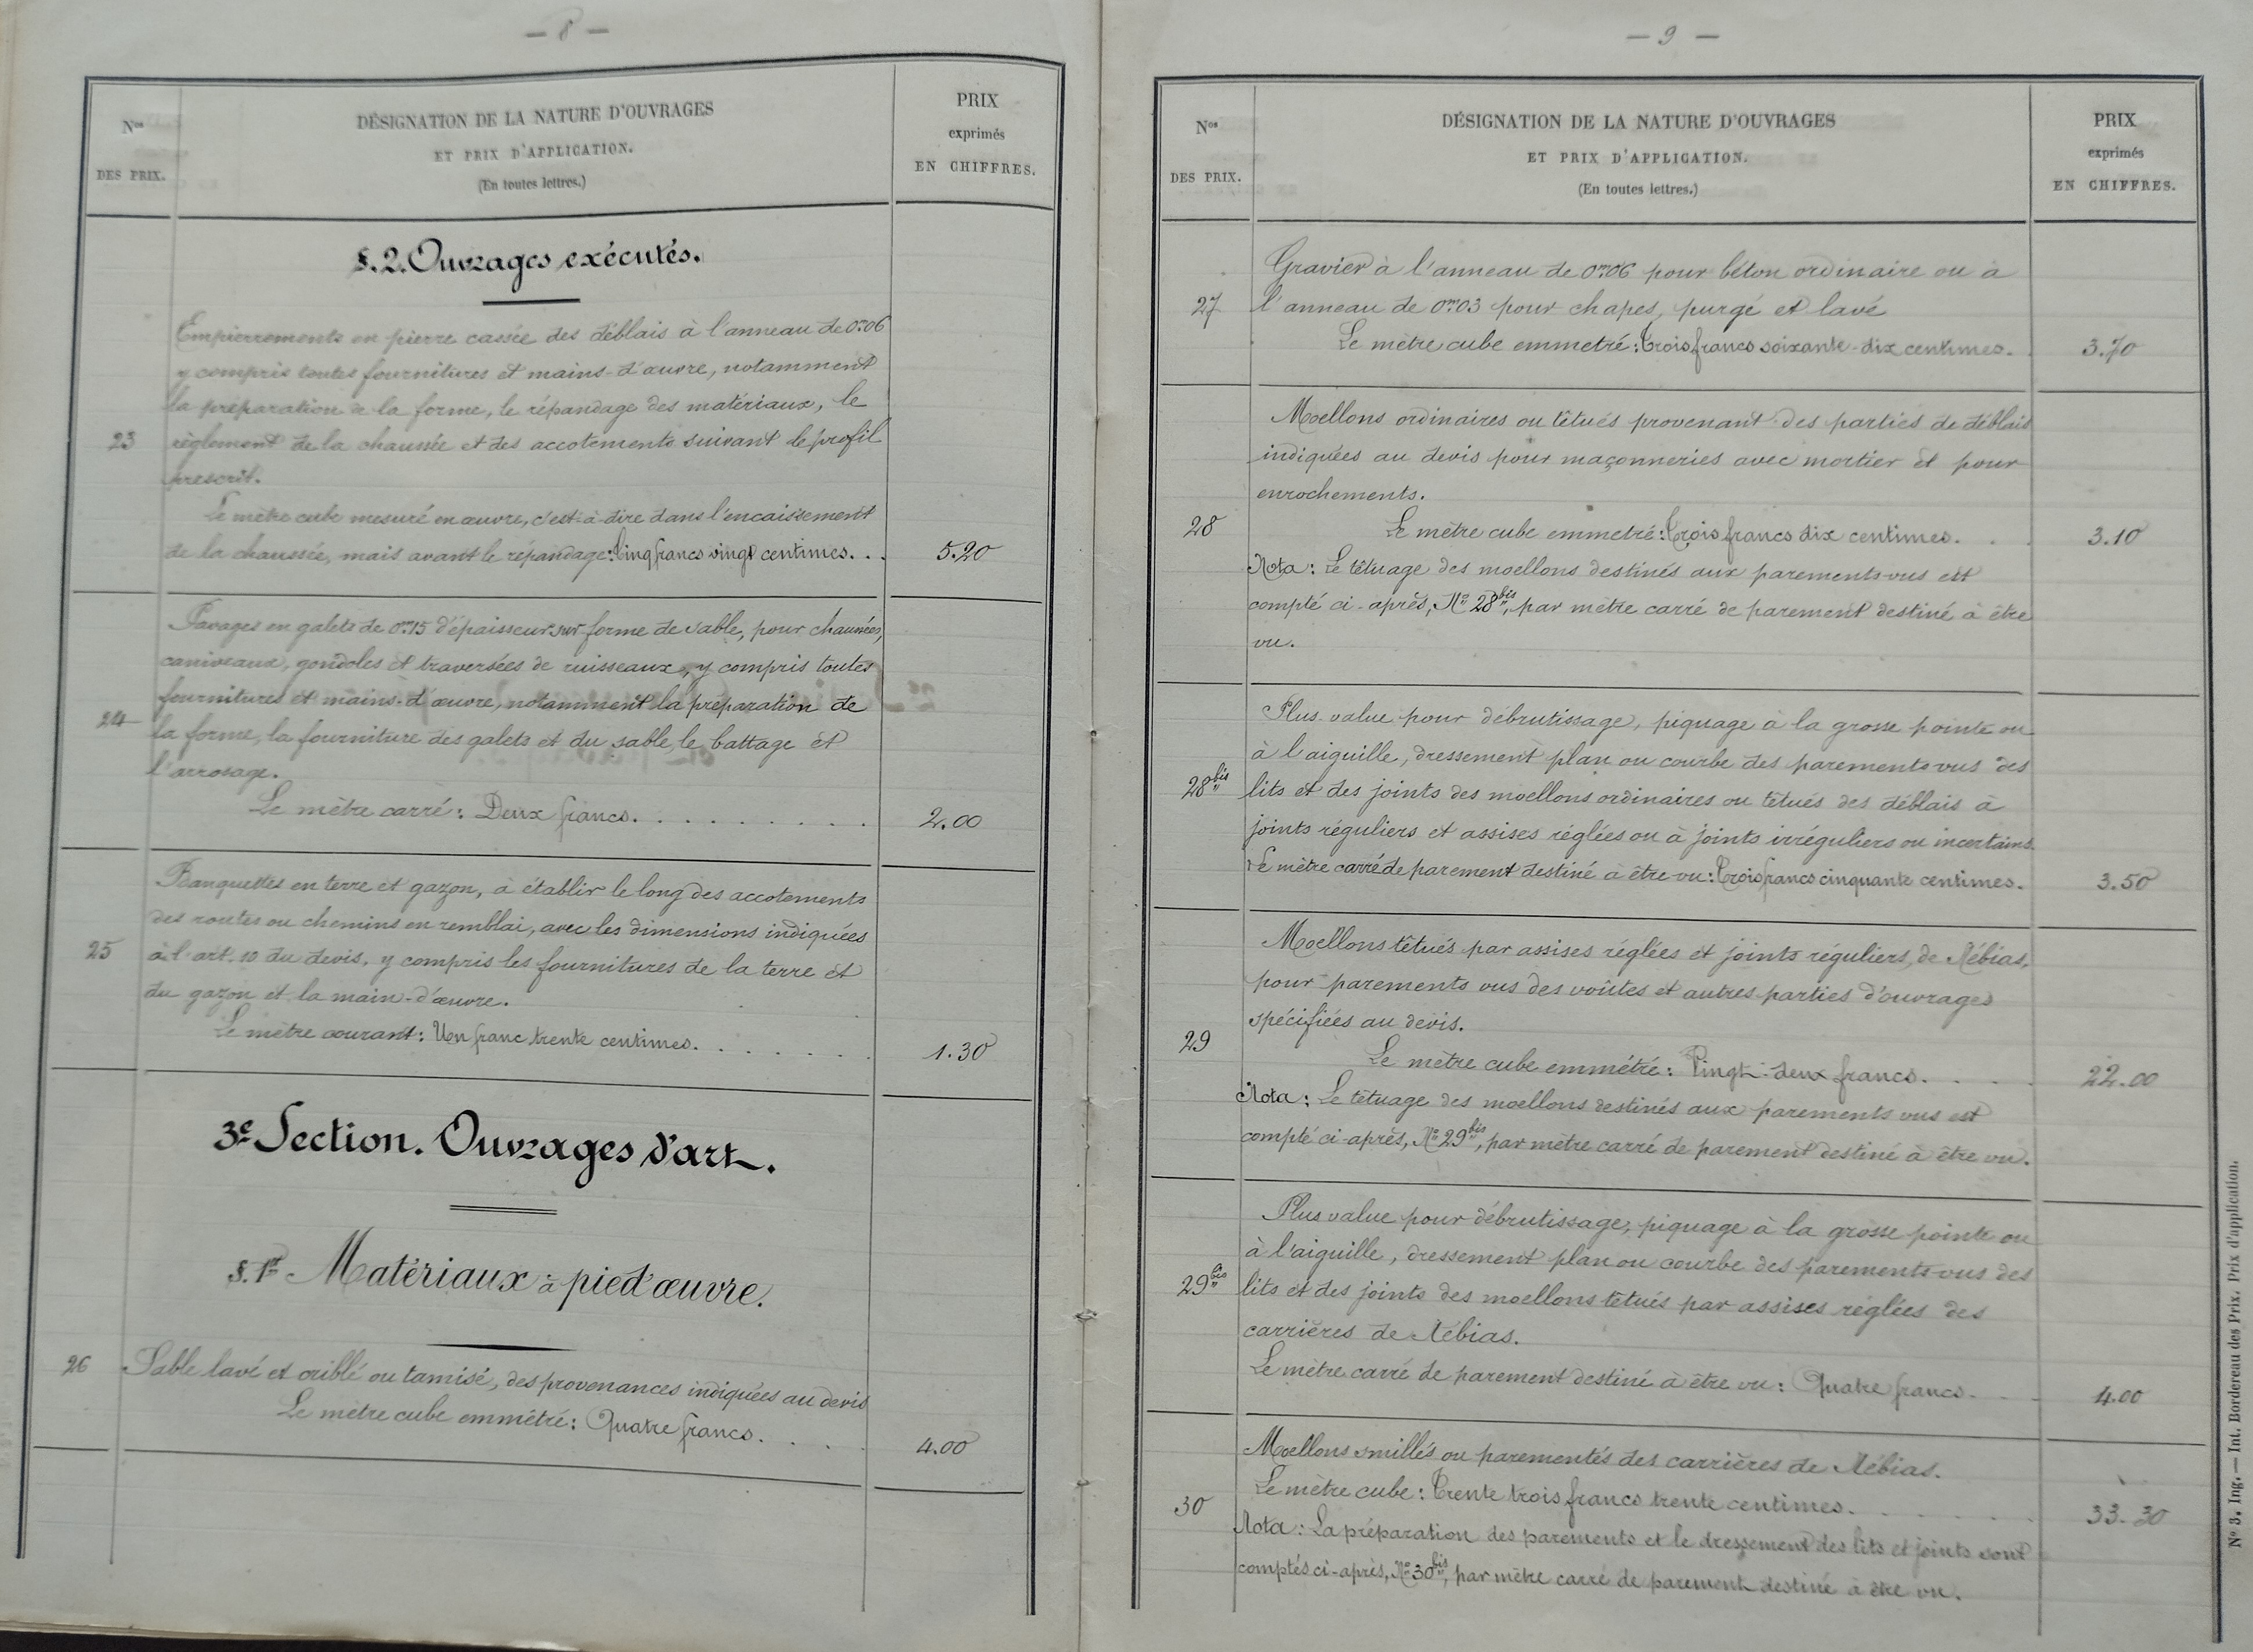 — 8 —
Nos
DES PRIX.
DÉSIGNATION DE LA NATURE D'OUVRAGES
ET PRIX D'APPLICATION.
(En toutes lettres.)
PRIX
exprimés
EN CHIFFRES.
§. 2. Ouvrages exécutés.
Empierrements en pierre cassée des déblais à l'anneau de 0m06
y compris toutes fournitures et mains-d'œuvre, notamment
la préparation de la forme, le répandage des matériaux, le
23 règlement de la chaussée et des accotements suivant le profil
prescrit.
Le mètre cube mesuré en œuvre, c'est-à-dire dans l'encaissement
de la chaussée, mais avant le répandage: Cinq francs vingt centimes. . . 5.20
Pavages en galets de 0m15 d'épaisseur sur forme de sable, pour chaussées,
caniveaux, gondoles et traversées de ruisseaux, y compris toutes
fournitures et mains-d'œuvre, notamment la préparation de
24 la forme, la fourniture des galets et du sable, le battage et
l'arrosage.
Le mètre carré: Deux francs. . . . . . . . . 2.00
Banquettes en terre et gazon, à établir le long des accotements
des routes ou chemins en remblai, avec les dimensions indiquées
25 à l'art. 10 du devis, y compris les fournitures de la terre et
du gazon et la main-d'œuvre.
Le mètre courant: Un franc trente centimes. . . . . . . 1.30
3e Section. Ouvrages d'art.
§. 1er Matériaux à pied d'œuvre.
26 Sable lavé et criblé ou tamisé, des provenances indiquées au devis
Le mètre cube emmétré: Quatre francs. . . . 4.00
— 9 —
Nos
DES PRIX.
DÉSIGNATION DE LA NATURE D'OUVRAGES
ET PRIX D'APPLICATION.
(En toutes lettres.)
PRIX
exprimés
EN CHIFFRES.
Gravier à l'anneau de 0m06 pour béton ordinaire ou à
27 l'anneau de 0m03 pour chapes, purgé et lavé
Le mètre cube emmetré: Trois francs soixante-dix centimes. 3.70
Moellons ordinaires ou têtués provenant des parties de déblais
indiquées au devis pour maçonneries avec mortier et pour
enrochements.
28 Le mètre cube emmetré: Trois francs dix centimes. . . 3.10
Nota: Le têtuage des moellons destinés aux parements vus est
compté ci-après, No 28bis, par mètre carré de parement destiné à être
vu.
Plus-value pour débrutissage, piquage à la grosse pointe ou
à l'aiguille, dressement plan ou courbe des parements vus des
28bis lits et des joints des moellons ordinaires ou têtués des déblais à
joints réguliers et assises réglées ou à joints irréguliers ou incertains.
Le mètre carré de parement destiné à être vu: Trois francs cinquante centimes. 3.50
Moellons têtués par assises réglées et joints réguliers, de Nébias,
pour parements vus des voûtes et autres parties d'ouvrages
spécifiées au devis.
29 Le mètre cube emmétré: Vingt-deux francs. . . . 22.00
Nota: Le têtuage des moellons destinés aux parements vus est
compté ci-après, No 29bis, par mètre carré de parement destiné à être vu.
Plus value pour débrutissage, piquage à la grosse pointe ou
à l'aiguille, dressement plan ou courbe des parements vus des
29bis lits et des joints des moellons têtués par assises réglées des
carrières de Nébias.
Le mètre carré de parement destiné à être vu: Quatre francs. . . 4.00
Moellons smillés ou parementés des carrières de Nébias.
30 Le mètre cube: Trente trois francs trente centimes. . . . . . 33.30
Nota: La préparation des parements et le dressement des lits et joints sont
comptés ci-après, No 30bis, par mètre carré de parement destiné à être vu.
No 3. Ing. — Int. Bordereau des Prix. Prix d'application.